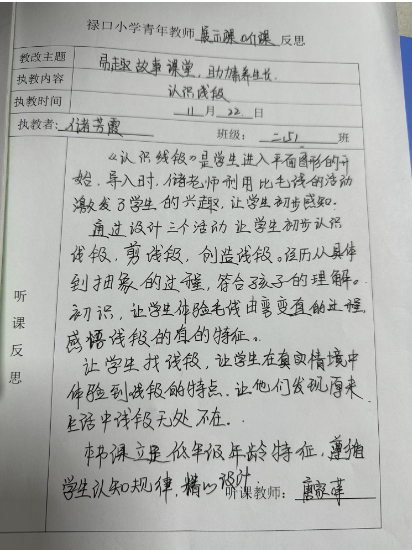 禄口小学青年教师 展示课听课 反思
教改主题 乐趣故事课堂，助力素养生长
执教内容 认识线段
执教时间 11 月 22 日
执教者：储芳霞 班级： 二（5） 班
《认识线段》是学生进入平面图形的开
始，导入时，储老师利用比毛线的活动
激发了学生的兴趣，让学生初步感知。
通过设计三个活动让学生初步认识
线段，剪线段，创造线段。经历从具体
到抽象的过程，符合孩子的理解。
初识，让学生体验毛线由弯变直的过程，
感悟线段的直的特征。
让学生找线段，让学生在真实情境中
体验到线段的特点，让他们发现原来
生活中线段无处不在。
本节课立足低年级年龄特征，遵循
学生认知规律，精心设计
听课反思
听课教师：